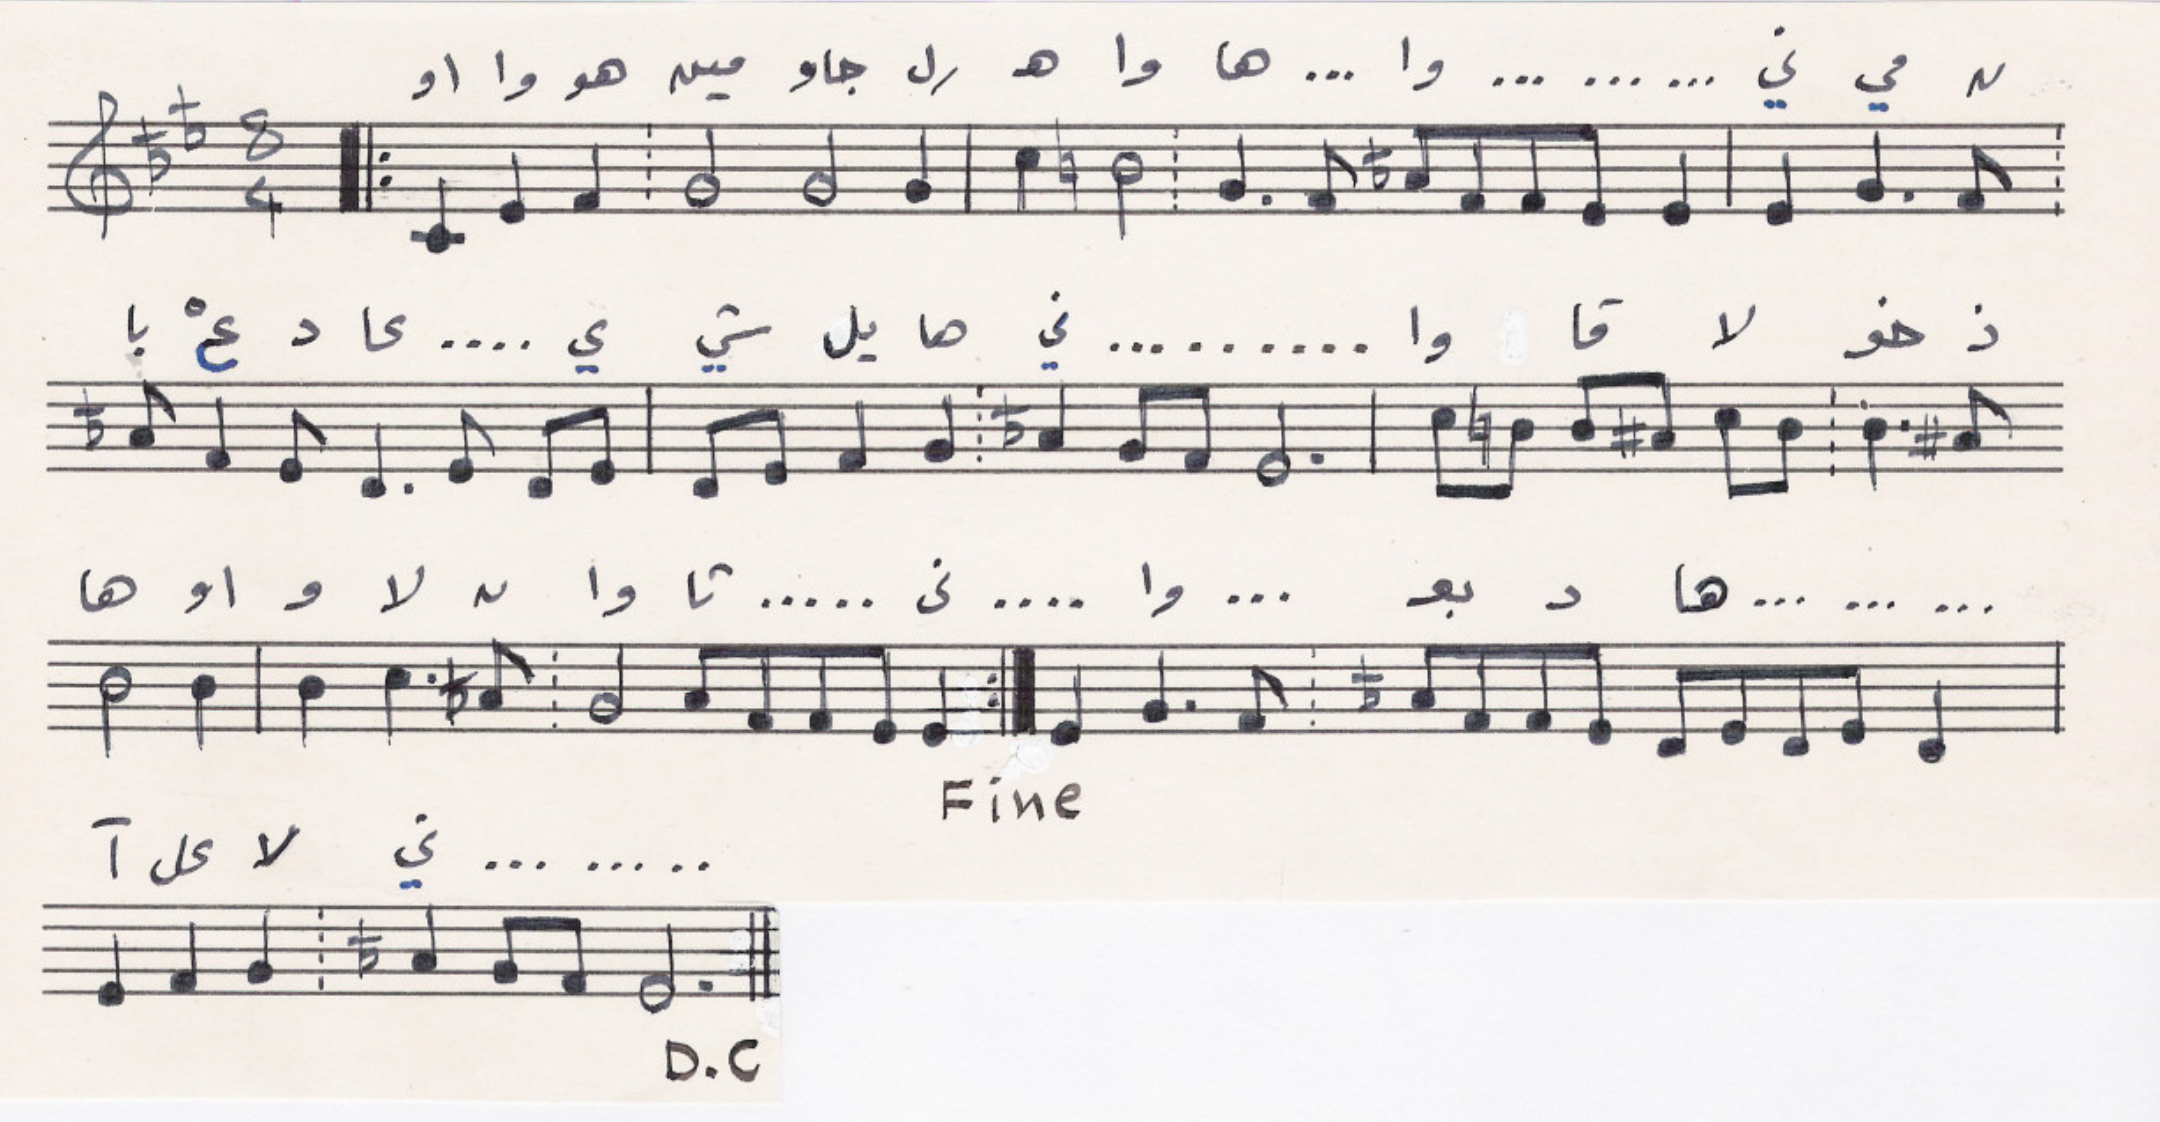 او وا هو مين جاو رل هـ وا ها ... وا ... ... ... ني مي ن
8
4
با عْ د عا .... ي شي يل ها ني .......... وا قا لا خو ذ
ها او و لا ن وا تا ..... ني .... وا ... بعـ د ها ... ... ...
Fine
آ عل لا ني ... ... ..
D.C